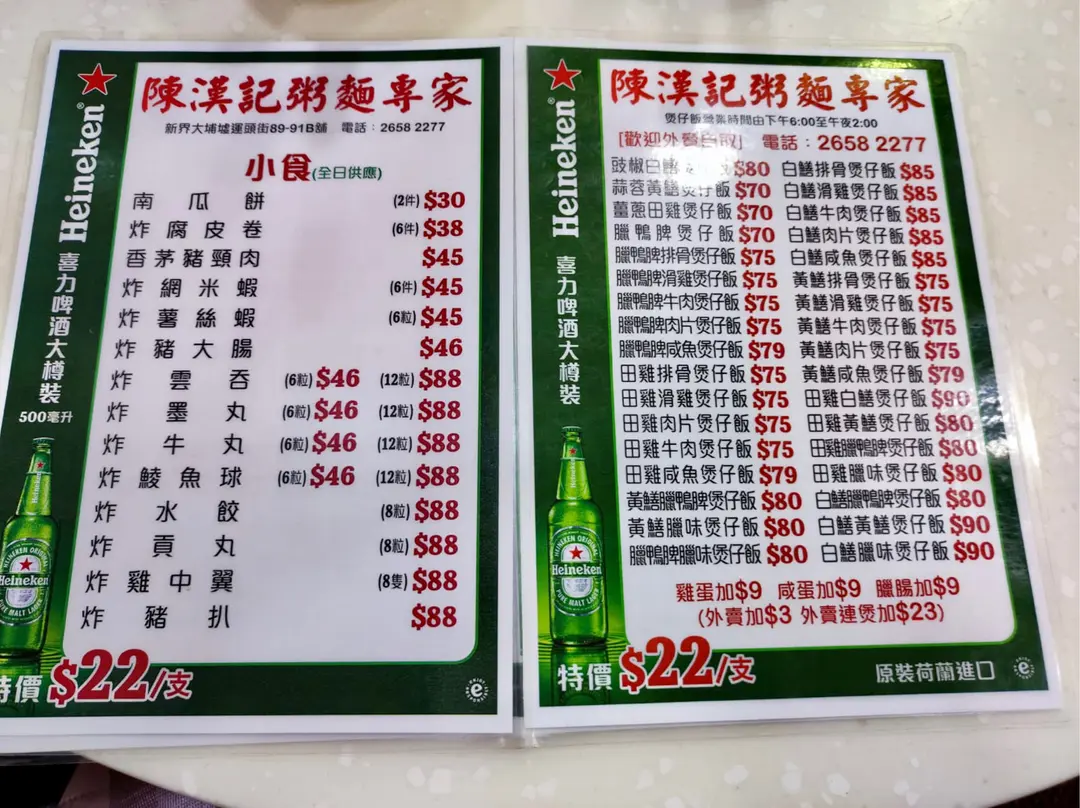 陳漢記粥麵專家
新界大埔墟運頭街89-91B舖 電話：2658 2277
小食(全日供應)
南瓜餅 (2件) $30
炸腐皮卷 (6件) $38
香茅豬頸肉 $45
炸網米蝦 (6件) $45
炸薯絲蝦 (6粒) $45
炸豬大腸 $46
炸雲吞 (6粒) $46 (12粒) $88
炸墨丸 (6粒) $46 (12粒) $88
炸牛丸 (6粒) $46 (12粒) $88
炸鯪魚球 (6粒) $46 (12粒) $88
炸水餃 (8粒) $88
炸貢丸 (8粒) $88
炸雞中翼 (8隻) $88
炸豬扒 $88
Heineken®
喜力啤酒大樽裝
500毫升
HEINEKEN ORIGINAL
Heineken
PURE MALT LAGER
特價 $22/支
陳漢記粥麵專家
煲仔飯營業時間由下午6:00至午夜2:00
[歡迎外賣自取] 電話：2658 2277
豉椒白鱔 $80 白鱔排骨煲仔飯 $85
蒜蓉黃鱔煲仔飯 $70 白鱔滑雞煲仔飯 $85
薑蔥田雞煲仔飯 $70 白鱔牛肉煲仔飯 $85
臘鴨脾煲仔飯 $70 白鱔肉片煲仔飯 $85
臘鴨脾排骨煲仔飯 $75 白鱔咸魚煲仔飯 $85
臘鴨脾滑雞煲仔飯 $75 黃鱔排骨煲仔飯 $75
臘鴨脾牛肉煲仔飯 $75 黃鱔滑雞煲仔飯 $75
臘鴨脾肉片煲仔飯 $75 黃鱔牛肉煲仔飯 $75
臘鴨脾咸魚煲仔飯 $79 黃鱔肉片煲仔飯 $75
田雞排骨煲仔飯 $75 黃鱔咸魚煲仔飯 $79
田雞滑雞煲仔飯 $75 田雞白鱔煲仔飯 $90
田雞肉片煲仔飯 $75 田雞黃鱔煲仔飯 $80
田雞牛肉煲仔飯 $75 田雞臘鴨脾煲仔飯 $80
田雞咸魚煲仔飯 $79 田雞臘味煲仔飯 $80
黃鱔臘鴨脾煲仔飯 $80 白鱔臘鴨脾煲仔飯 $80
黃鱔臘味煲仔飯 $80 白鱔黃鱔煲仔飯 $90
臘鴨脾臘味煲仔飯 $80 白鱔臘味煲仔飯 $90
雞蛋加$9 咸蛋加$9 臘腸加$9
(外賣加$3 外賣連煲加$23)
Heineken®
喜力啤酒大樽裝
HEINEKEN ORIGINAL
Heineken
PURE MALT LAGER
特價 $22/支
原裝荷蘭進口